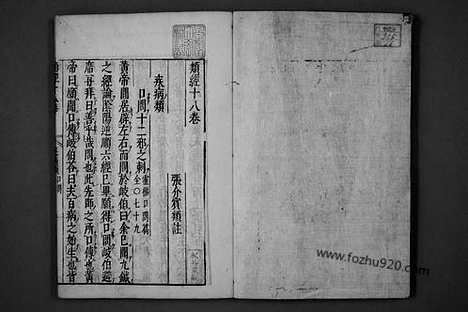 類經十八卷
張介賓類註
疾病類
口問十二邪之刺靈樞口問篇全○七十九
黃帝閒居辟左右而問於岐伯曰余已聞九鍼
之經論陰陽逆順六經已畢願得口問岐伯避
席再拜曰善乎哉問也此先師之所口傳也黃
帝曰願聞口傳岐伯答曰夫百病之始生也皆
www.fozhu920.com